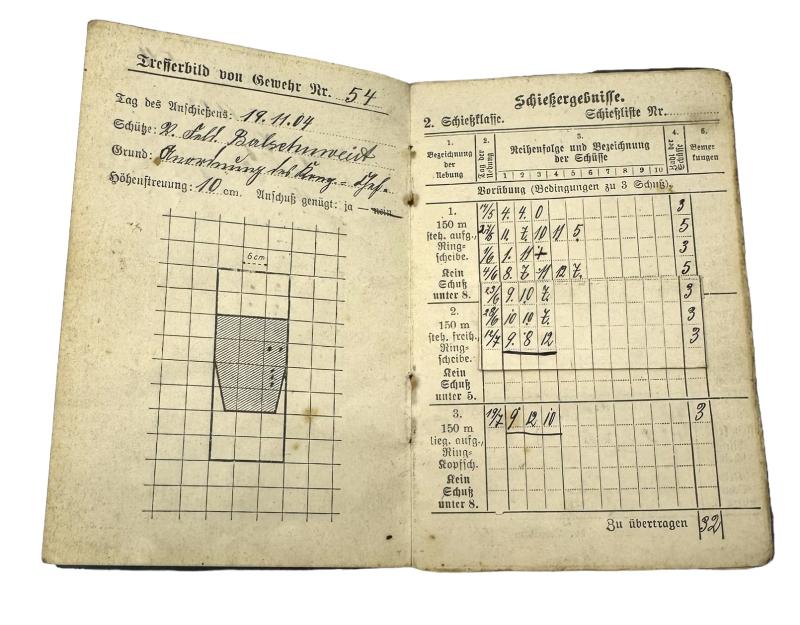 Trefferbild von Gewehr Nr. 54
Tag des Anschießens: 19.11.04
Schütze: V. Feld.
Grund: Anordnung des Komp. - Chef.
Höhenstreuung: 10 cm. Anschuß genügt: ja — nein.
6 cm
Schießergebnisse.
2. Schießklasse. Schießliste Nr.
1. Bezeichnung der Uebung
2. Tag der Uebung
3. Reihenfolge und Bezeichnung der Schüsse
4. Zahl der Schüsse
5. Bemerkungen
1 2 3 4 5 6 7 8 9 10
Vorübung (Bedingungen zu 3 Schuß).
1.
150 m
steh. aufg.,
Ring-
scheibe.
Kein
Schuß
unter 8.
17/5 4. 4. 0 3
11. 7. 10 11 5 5
1/6 1. 11 + 3
4/6 8. 7. 11 12 7. 5
23/6 9. 10 7. 3
2.
150 m
steh. freih.,
Ring-
scheibe.
Kein
Schuß
unter 5.
28/6 10 10 7. 3
12/7 9. 8 12 3
3.
150 m
lieg. aufg.,
Ring-
Kopfsch.
Kein
Schuß
unter 8.
19/7 9 12 10 3
Zu übertragen 32